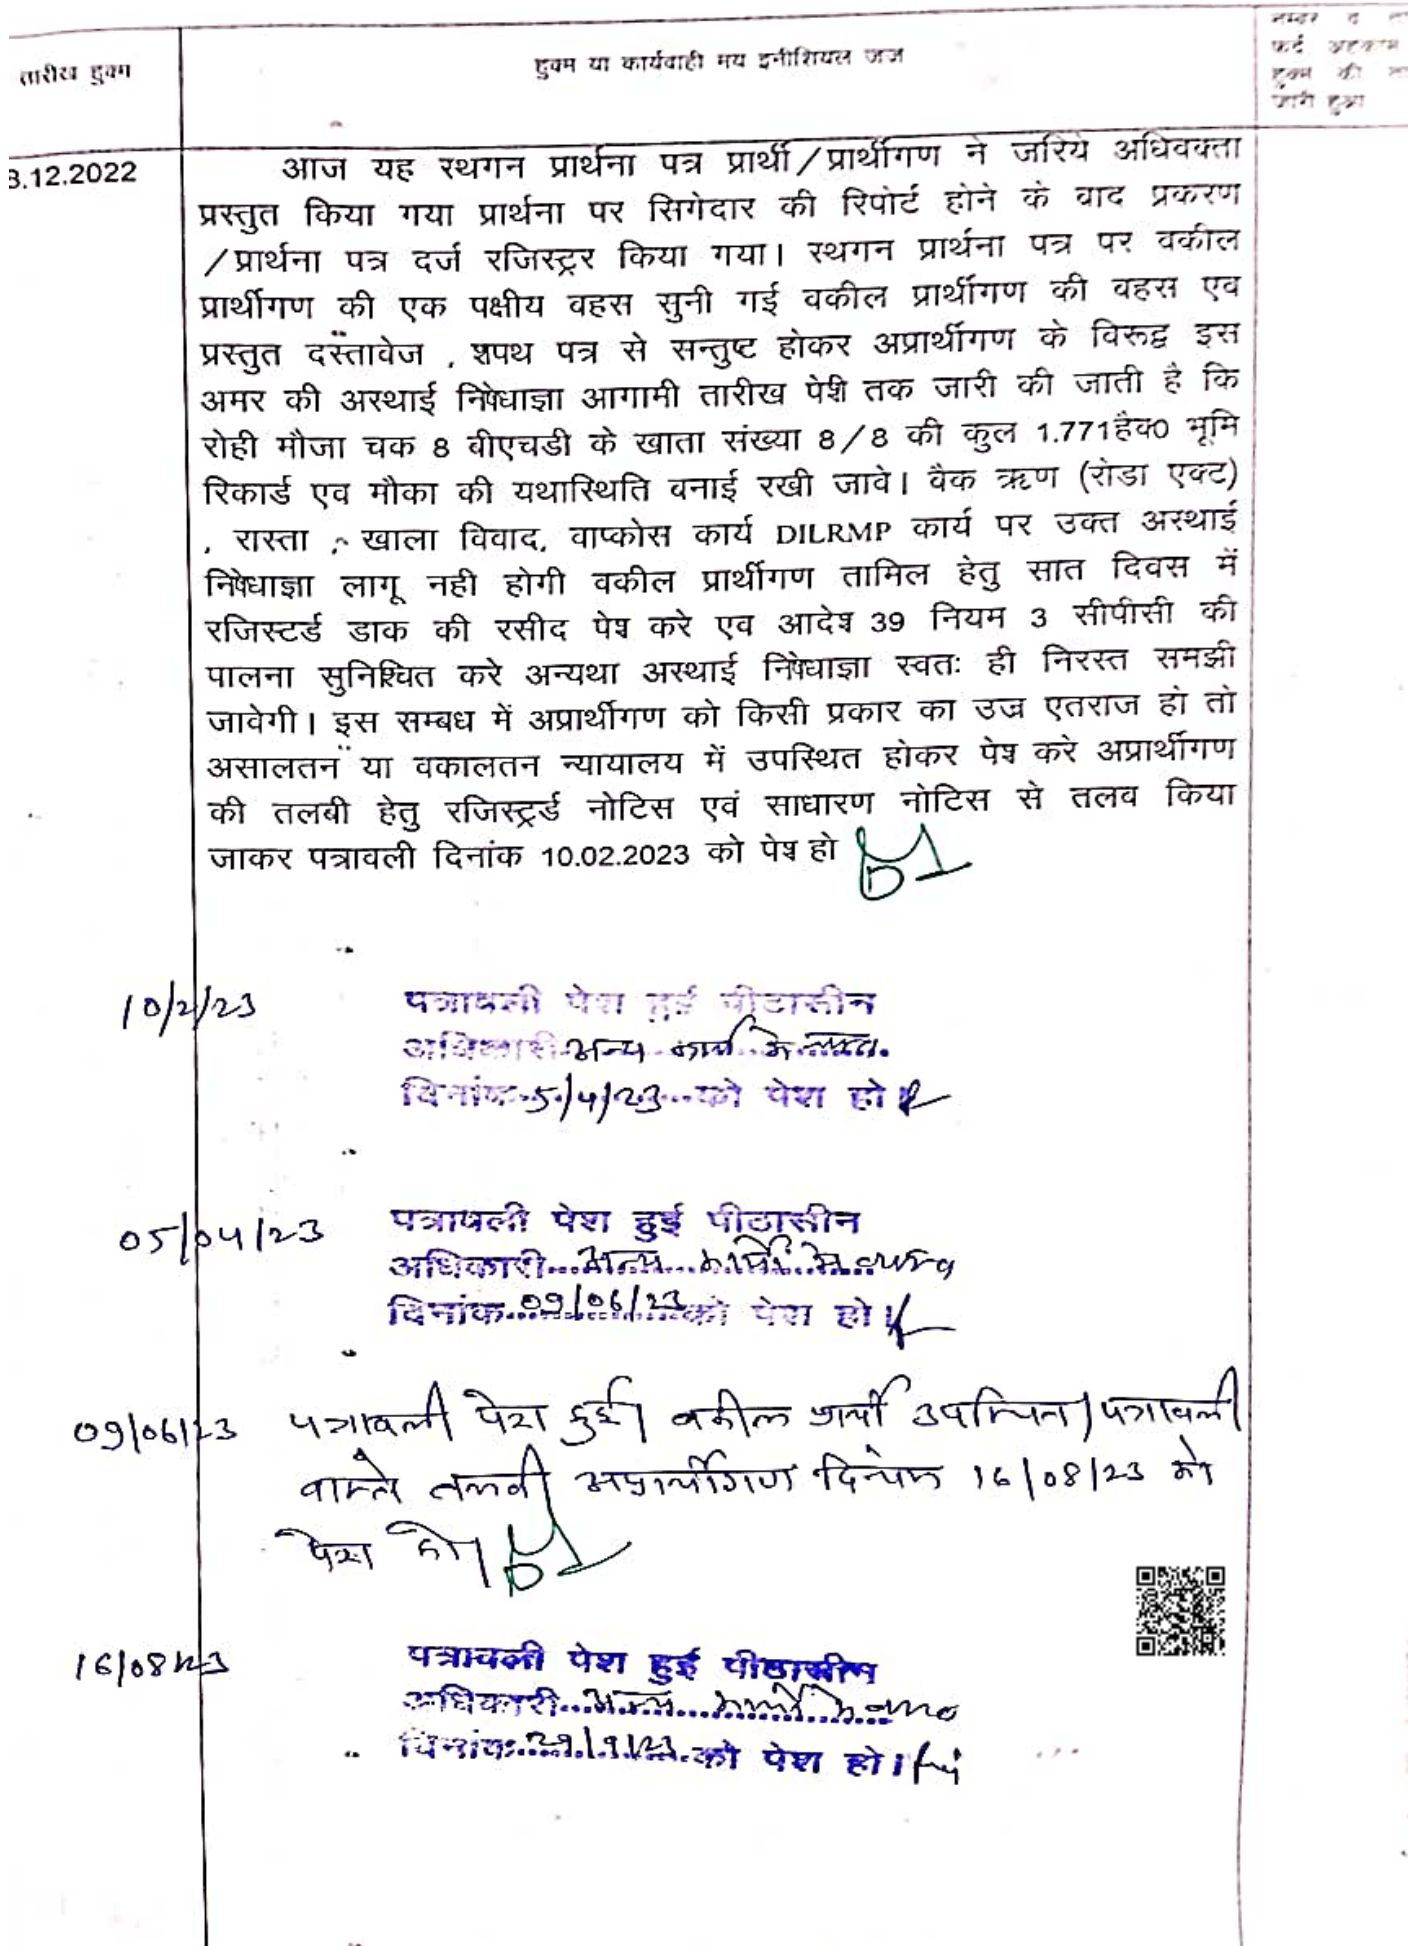 तारीख हुक्म
हुक्म या कार्यवाही मय इनीशियल जज
नम्बर व
फर्द अहकाम
हुक्म की
जारी हुआ
3.12.2022
आज यह स्थगन प्रार्थना पत्र प्रार्थी/प्रार्थीगण ने जरिये अधिवक्ता
प्रस्तुत किया गया प्रार्थना पर सिगेदार की रिपोर्ट होने के वाद प्रकरण
/प्रार्थना पत्र दर्ज रजिस्ट्रर किया गया। स्थगन प्रार्थना पत्र पर वकील
प्रार्थीगण की एक पक्षीय वहस सुनी गई वकील प्रार्थीगण की वहस एव
प्रस्तुत दस्तावेज , शपथ पत्र से सन्तुष्ट होकर अप्रार्थीगण के विरूद्व इस
अमर की अस्थाई निषेधाज्ञा आगामी तारीख पेशी तक जारी की जाती है कि
रोही मौजा चक 8 बीएचडी के खाता संख्या 8/8 की कुल 1.771हैक0 भूमि
रिकार्ड एव मौका की यथास्थिति वनाई रखी जावे। वैक ऋण (रोडा एक्ट)
, रास्ता , खाला विवाद, वाप्कोस कार्य DILRMP कार्य पर उक्त अस्थाई
निषेधाज्ञा लागू नही होगी वकील प्रार्थीगण तामिल हेतु सात दिवस में
रजिस्टर्ड डाक की रसीद पेश करे एव आदेश 39 नियम 3 सीपीसी की
पालना सुनिश्चित करे अन्यथा अस्थाई निषेधाज्ञा स्वतः ही निरस्त समझी
जावेगी। इस सम्बध में अप्रार्थीगण को किसी प्रकार का उज्र एतराज हो तो
असालतन या वकालतन न्यायालय में उपस्थित होकर पेश करे अप्रार्थीगण
की तलबी हेतु रजिस्ट्रर्ड नोटिस एवं साधारण नोटिस से तलव किया
जाकर पत्रावली दिनांक 10.02.2023 को पेश हो
10/2/23
पत्रावली पेश हुई पीठासीन
अधिकारी अन्य कार्य मे व्यस्त
दिनांक 5/4/23 को पेश हो।
05/04/23
पत्रावली पेश हुई पीठासीन
अधिकारी अन्य कार्यो मे व्यस्त
दिनांक 09/06/23 को पेश हो।
09/06/23
पत्रावली पेश हुई। वकील प्रार्थी उपस्थित। पत्रावली
वास्ते तलबी अप्रार्थीगण दिनांक 16/08/23 को
पेश हो।
16/08/23
पत्रावली पेश हुई पीठासीन
अधिकारी अन्य कार्यो मे व्यस्त
दिनांक 29/9/23 को पेश हो।